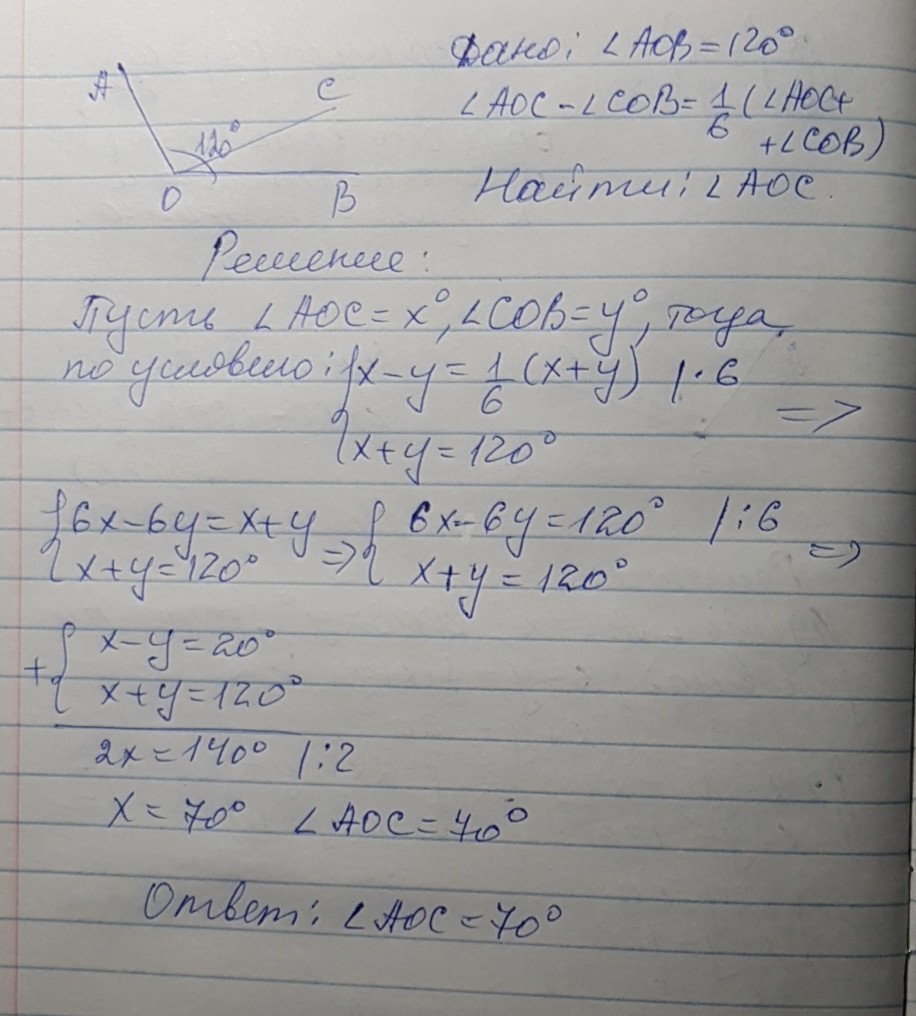 A
C
120°
O
B
Дано: ∠AOB = 120°
∠AOC - ∠COB = 1/6 (∠AOC+
+∠COB)
Найти: ∠AOC.
Решение:
Пусть ∠AOC = x°, ∠COB = y°, тогда
по условию: {x - y = 1/6 (x+y) |·6
{x+y = 120° =>
{6x - 6y = x+y => {6x - 6y = 120° |:6 =>
{x+y = 120° {x+y = 120°
+{x - y = 20°
{x+y = 120°
2x = 140° |:2
x = 70° ∠AOC = 70°
Ответ: ∠AOC = 70°